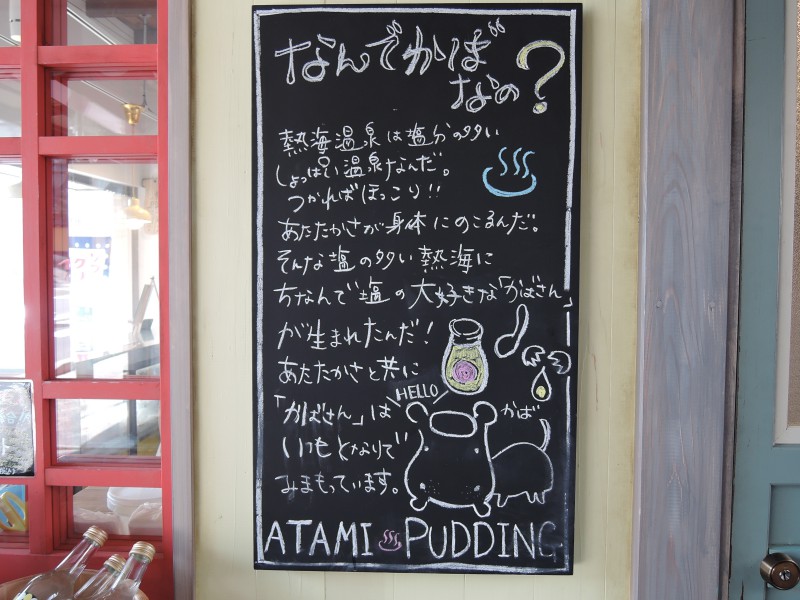 なんでかば
なの?
熱海温泉は塩分の多い
しょっぱい温泉なんだ。
つかればほっこり!!
あたたかさが身体にのこるんだ。
そんな塩の多い熱海に
ちなんで塩の大好きな「かばさん」
が生まれたんだ!
あたたかさと共に
HELLO
「かばさん」は
かば
いつもとなりで
みまもっています。
ATAMI♨PUDDING